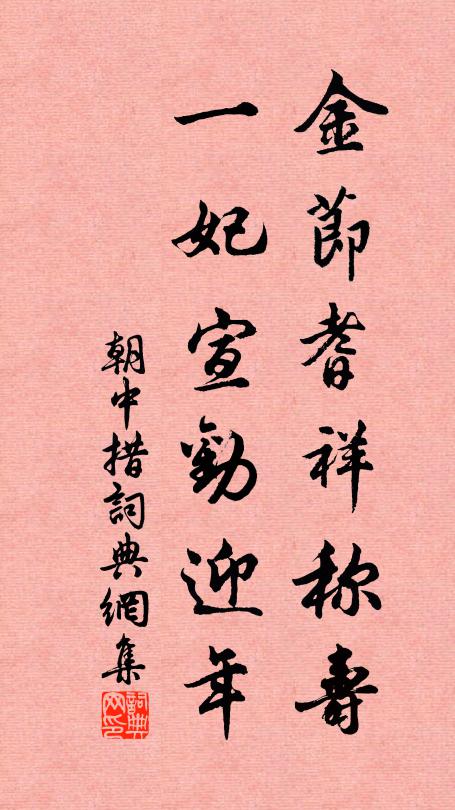 金節耆祥称壽
一妃宣勸迎年
朝中措詞典網集
詞典网印